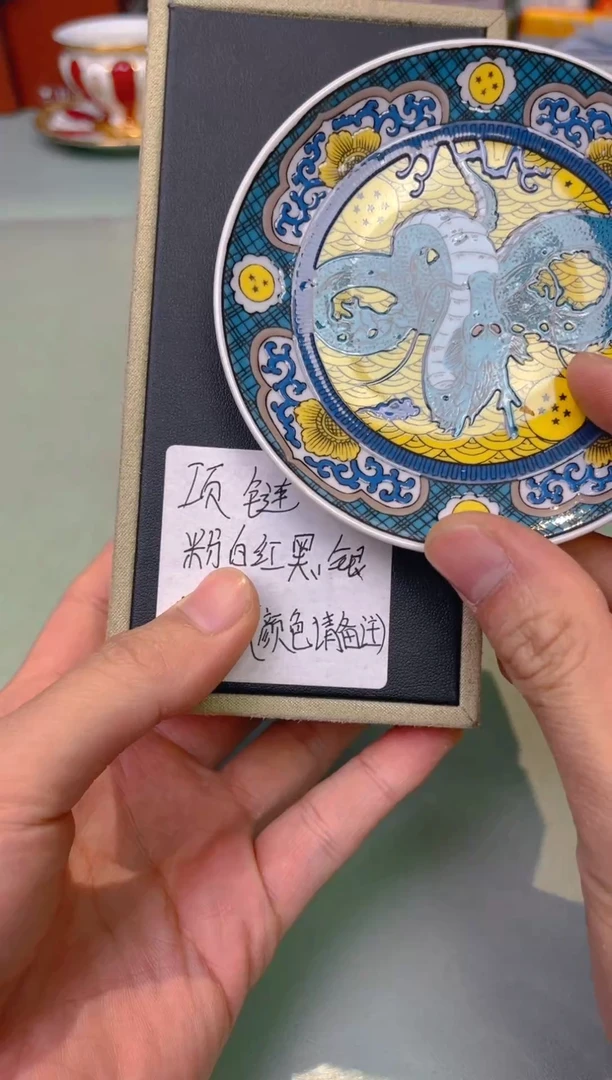 项链
粉白红黑银
(颜色请备注)